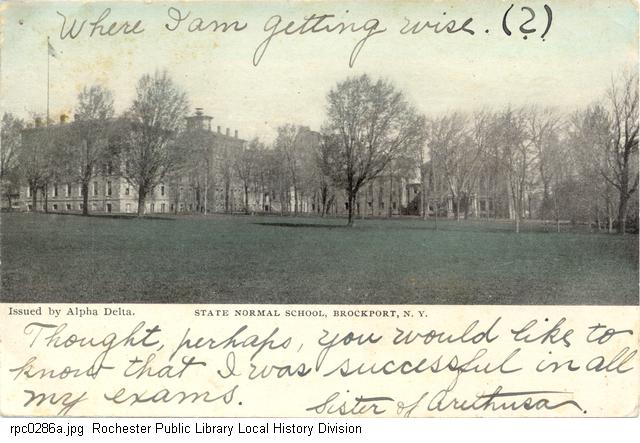 Where I am getting wise. (?)
Issued by Alpha Delta. STATE NORMAL SCHOOL, BROCKPORT, N. Y.
Thought, perhaps, you would like to
know that I was successful in all
my exams. Sister of Arethusa.
rpc0286a.jpg Rochester Public Library Local History Division